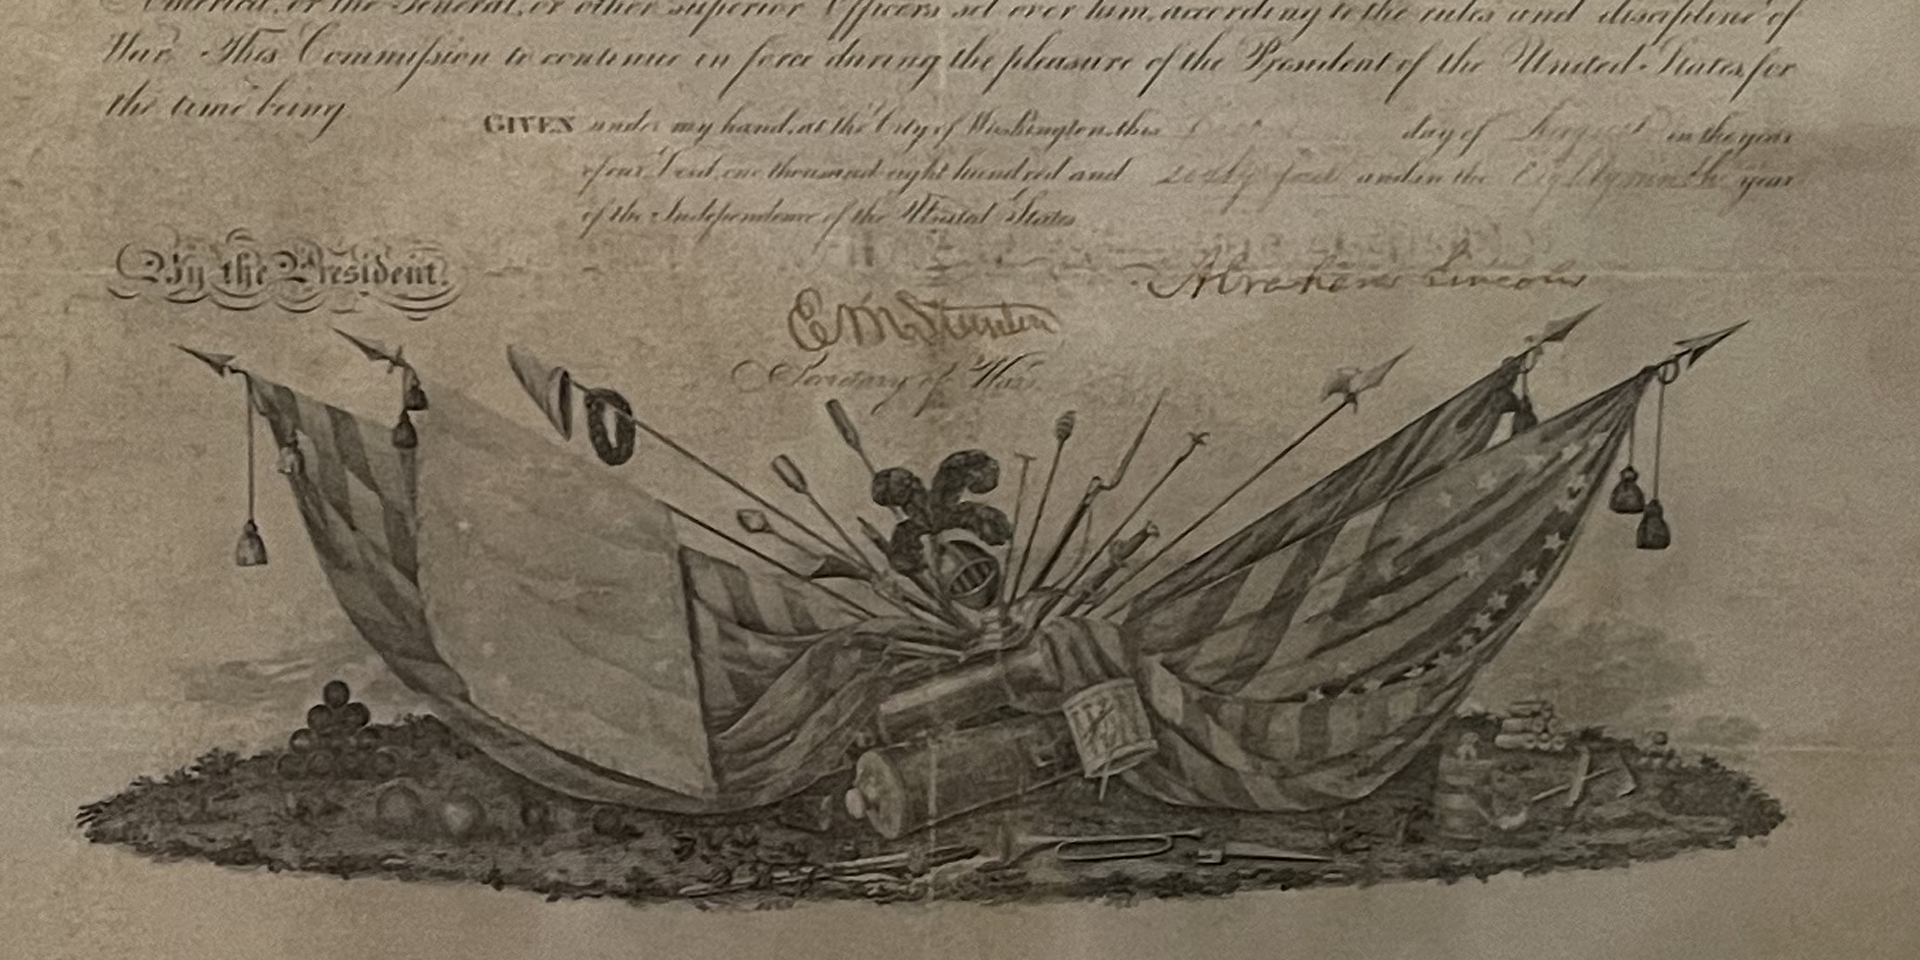 America, or the General, or other superior Officers set over him, according to the rules and discipline of
War. This Commission to continue in force during the pleasure of the President of the United States, for
the time being.
GIVEN under my hand, at the City of Washington, this day of August in the year
of our Lord, one thousand eight hundred and sixty four and in the Eighty ninth year
of the Independence of the United States.
By the President.
Abraham Lincoln
E M Stanton
Secretary of War.